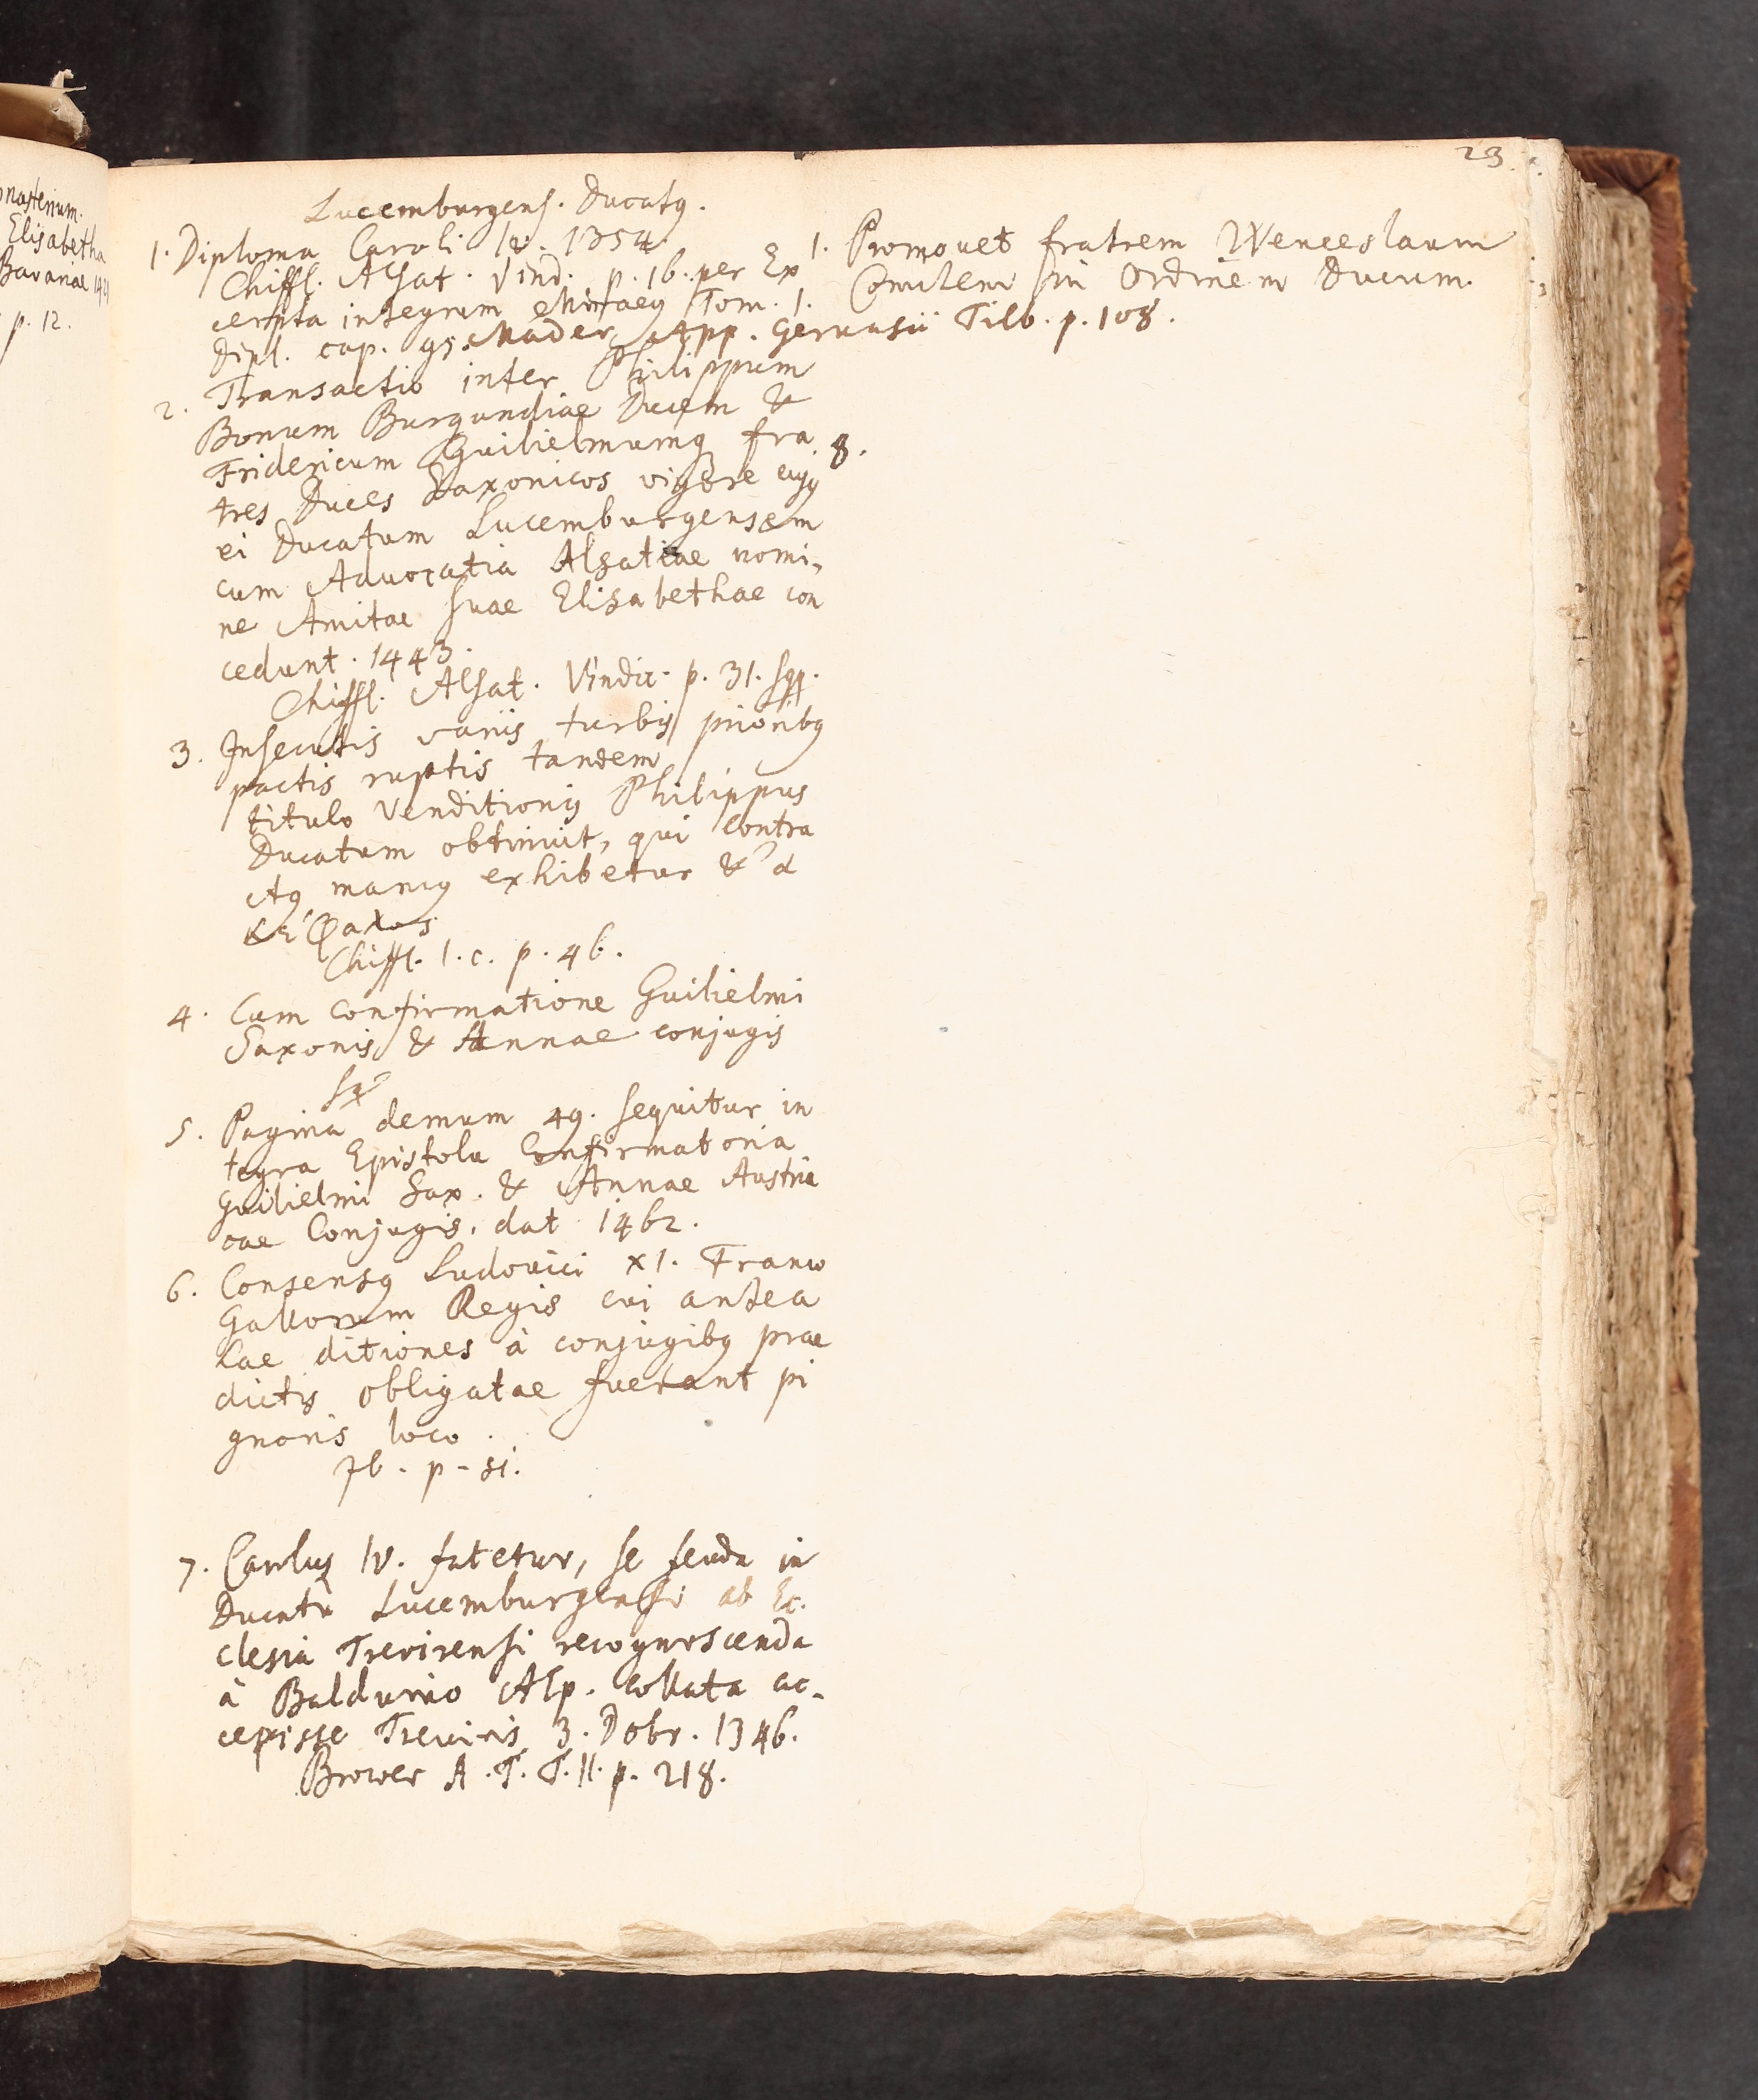 23.
onasterium.
Elisabetha
Bavariae 142
p. 12.
Lucemburgens. Ducatq.
1. Diploma Caroli IV. 1354.
Chiffl. Alsat. Vind. p. 16. per Ex
cerpta integrum Miraeq Tom. 1.
Dipl. cap. 95. Mader App. Gervasii Tilb. p. 108.
1. Promovet fratrem Wenceslaum
Comitem in Ordinem Ducum.
2. Transactio inter Philippum
Bonum Burgundiae Ducem &
Fridericum Guilielmumq fra
tres Duces Saxonicos vigore cujq
ei Ducatum Lucemburgensem
cum Advocatia Alsatiae nomi,
ne Amitae suae Elisabethae con
cedunt. 1443.
Chiffl. Alsat. Vindic. p. 31. sqq.
8.
3. Insecutis variis turbis prioribq
pactis ruptis tandem
titulo Venditionis Philippus
Ducatum obtinuit, qui contra
Aq mancq exhibetur & α
κέφαλος
Chiffl. l. c. p. 46.
4. Cum confirmatione Guilielmi
Saxonis & Annae conjugis
5. Pagina demum 49. sequitur in
tegra Epistola Confirmatoria
Guilielmi Sax. & Annae Austria
cae Conjugis. dat 1462.
6. Consensq Ludovici XI. Franco
Gallorum Regis cui antea
hae ditiones à conjugibq prae
dictis obligatae fuerant pi
gnoris loco.
Ib. p. 51.
7. Carolus IV. fatetur, se feuda in
Ducatu Lucemburgensi ab Ec.
clesia Trevirensi recognoscenda
à Balduino AEp. collata ac-
cepisse Treviris 3. Dobr. 1346.
Brower A. T. T. II. p. 218.